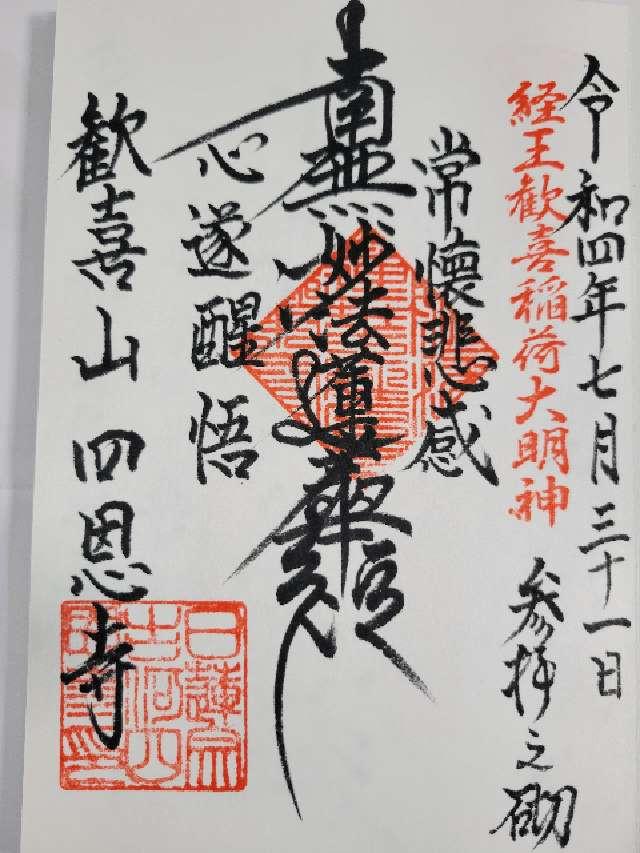 令和四年七月三十一日
経王歓喜稲荷大明神
参拝之砌
常懐悲感
南無妙法蓮華経
心遂醒悟
歓喜山 四恩寺